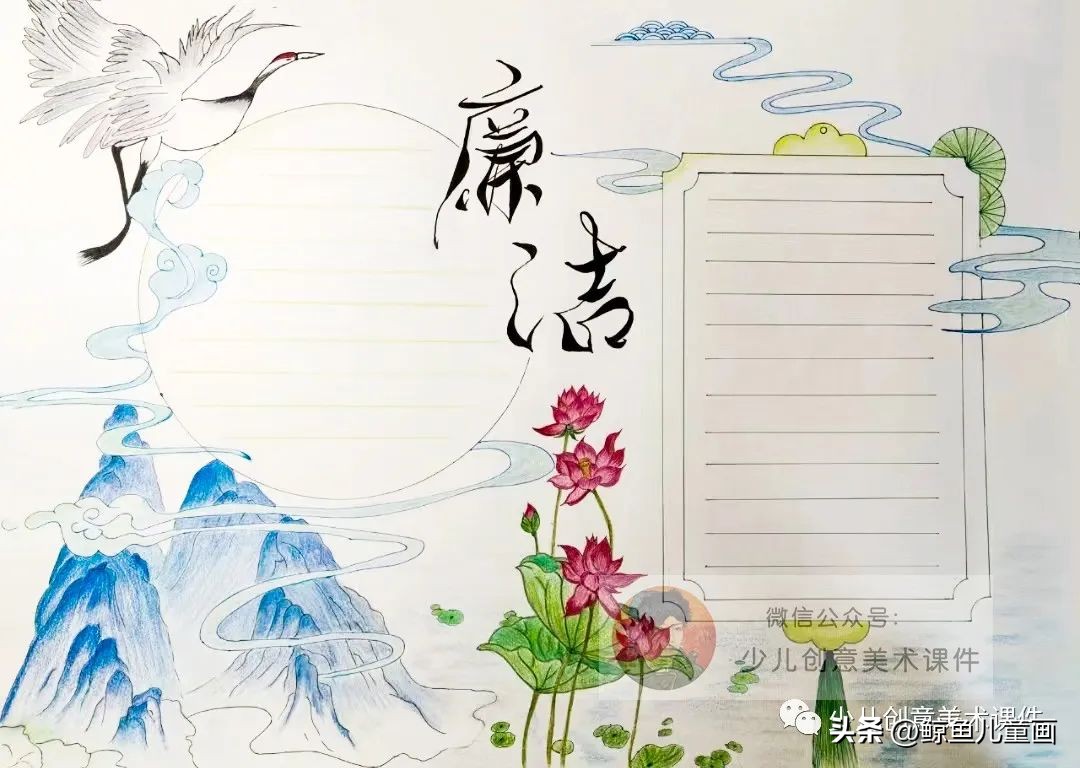 廉
洁
微信公众号：
少儿创意美术课件
少儿创意美术课件
头条 @鲸鱼儿童画